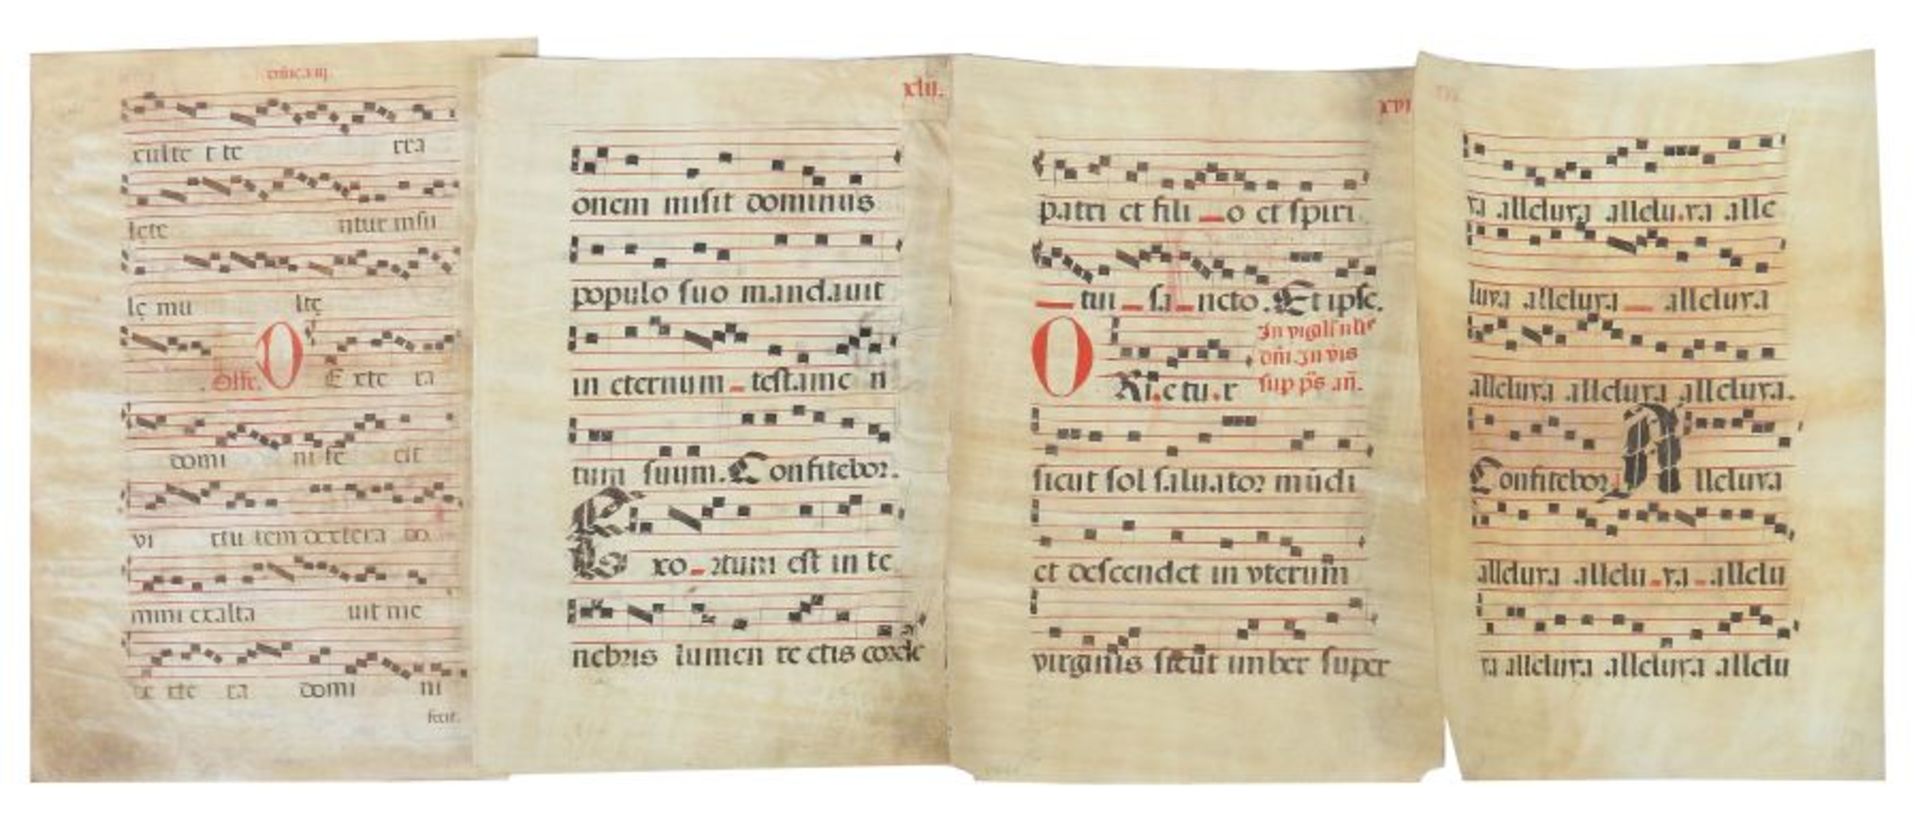 xculte t te rra
lete ntur insu
le mu lte
Offe. O E xte ra
domi ni fe cit
vi rtu tem dextera do
mini exalta uit me
de xte ra domi ni
fecit.
xlii.
onem misit dominus
populo suo mandauit
in eternum testame n
tum suum. Confitebor.
Exo rtum est in te
nebris lumen re ctis corde
xvi
patri et fili o et spiri
tui sa ncto. Et ipse.
ORietu r
In vigil' natis
dñi. In v̄is
sup p̄s añ.
sicut sol saluator mūdi
et descendet in vterum
virginis sicut imber super
ya alleluya allelu.ya alle
luya alleluya alleluya
alleluya alleluya alleluya.
Confitebor Alleluya
alleluya allelu ya allelu
ya alleluya alleluya allelu